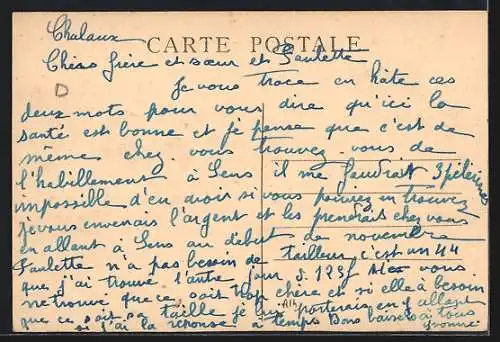 Chalaux
CARTE POSTALE
Chers frère et sœur et Paulette
Je vous trace en hâte ces
deux mots pour vous dire qu'ici la
santé est bonne et je pense que c'est de
même chez vous trouvez vous de
l'habillement à Sens il me faudrait 3 pélerines
impossible d'en avoir si vous pouviez en trouvez
je vous envenais l'argent et les prendrait chez vous
en allant à Sens au début de novembre
Paulette n'a pas besoin de tailleur c'est un 44
que j'ai trouvé l'autre jour à 123f si vous
ne trouve que ce soit trop chère et si elle à besoin
que ce soit sa taille je lui porterais en allant
si j'ai la reponse à temps Bons baisers à tous
Yvonne